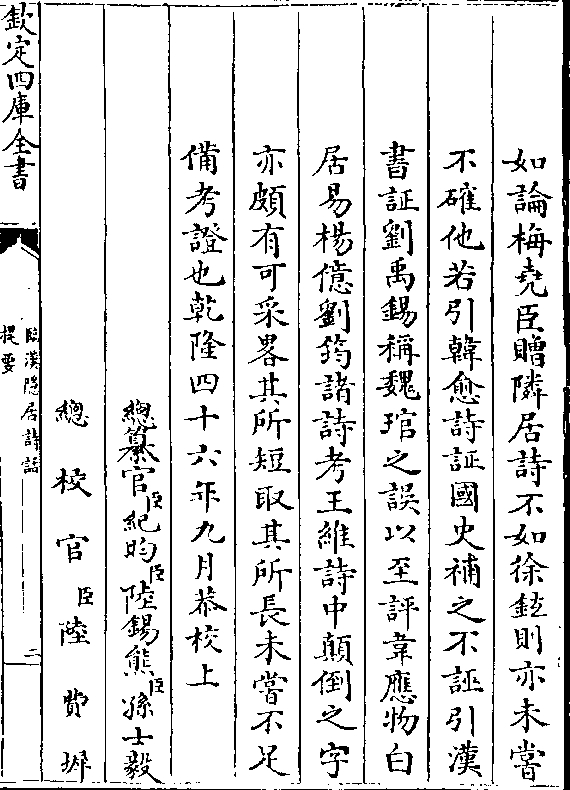 如論梅堯臣贈隣居詩不如徐鉉則亦未嘗
不確他若引韓愈詩証國史補之不誣引漢
書証劉禹錫稱魏琯之誤以至評韋應物白
居易楊億劉筠諸詩考王維詩中顛倒之字
亦頗有可采畧其所短取其所長未嘗不足
備考證也乾隆四十六年九月恭校上
總纂官臣紀昀臣陸錫熊臣孫士毅
總校官臣陸費墀
欽定四庫全書
臨漢隠居詩話
提要
二